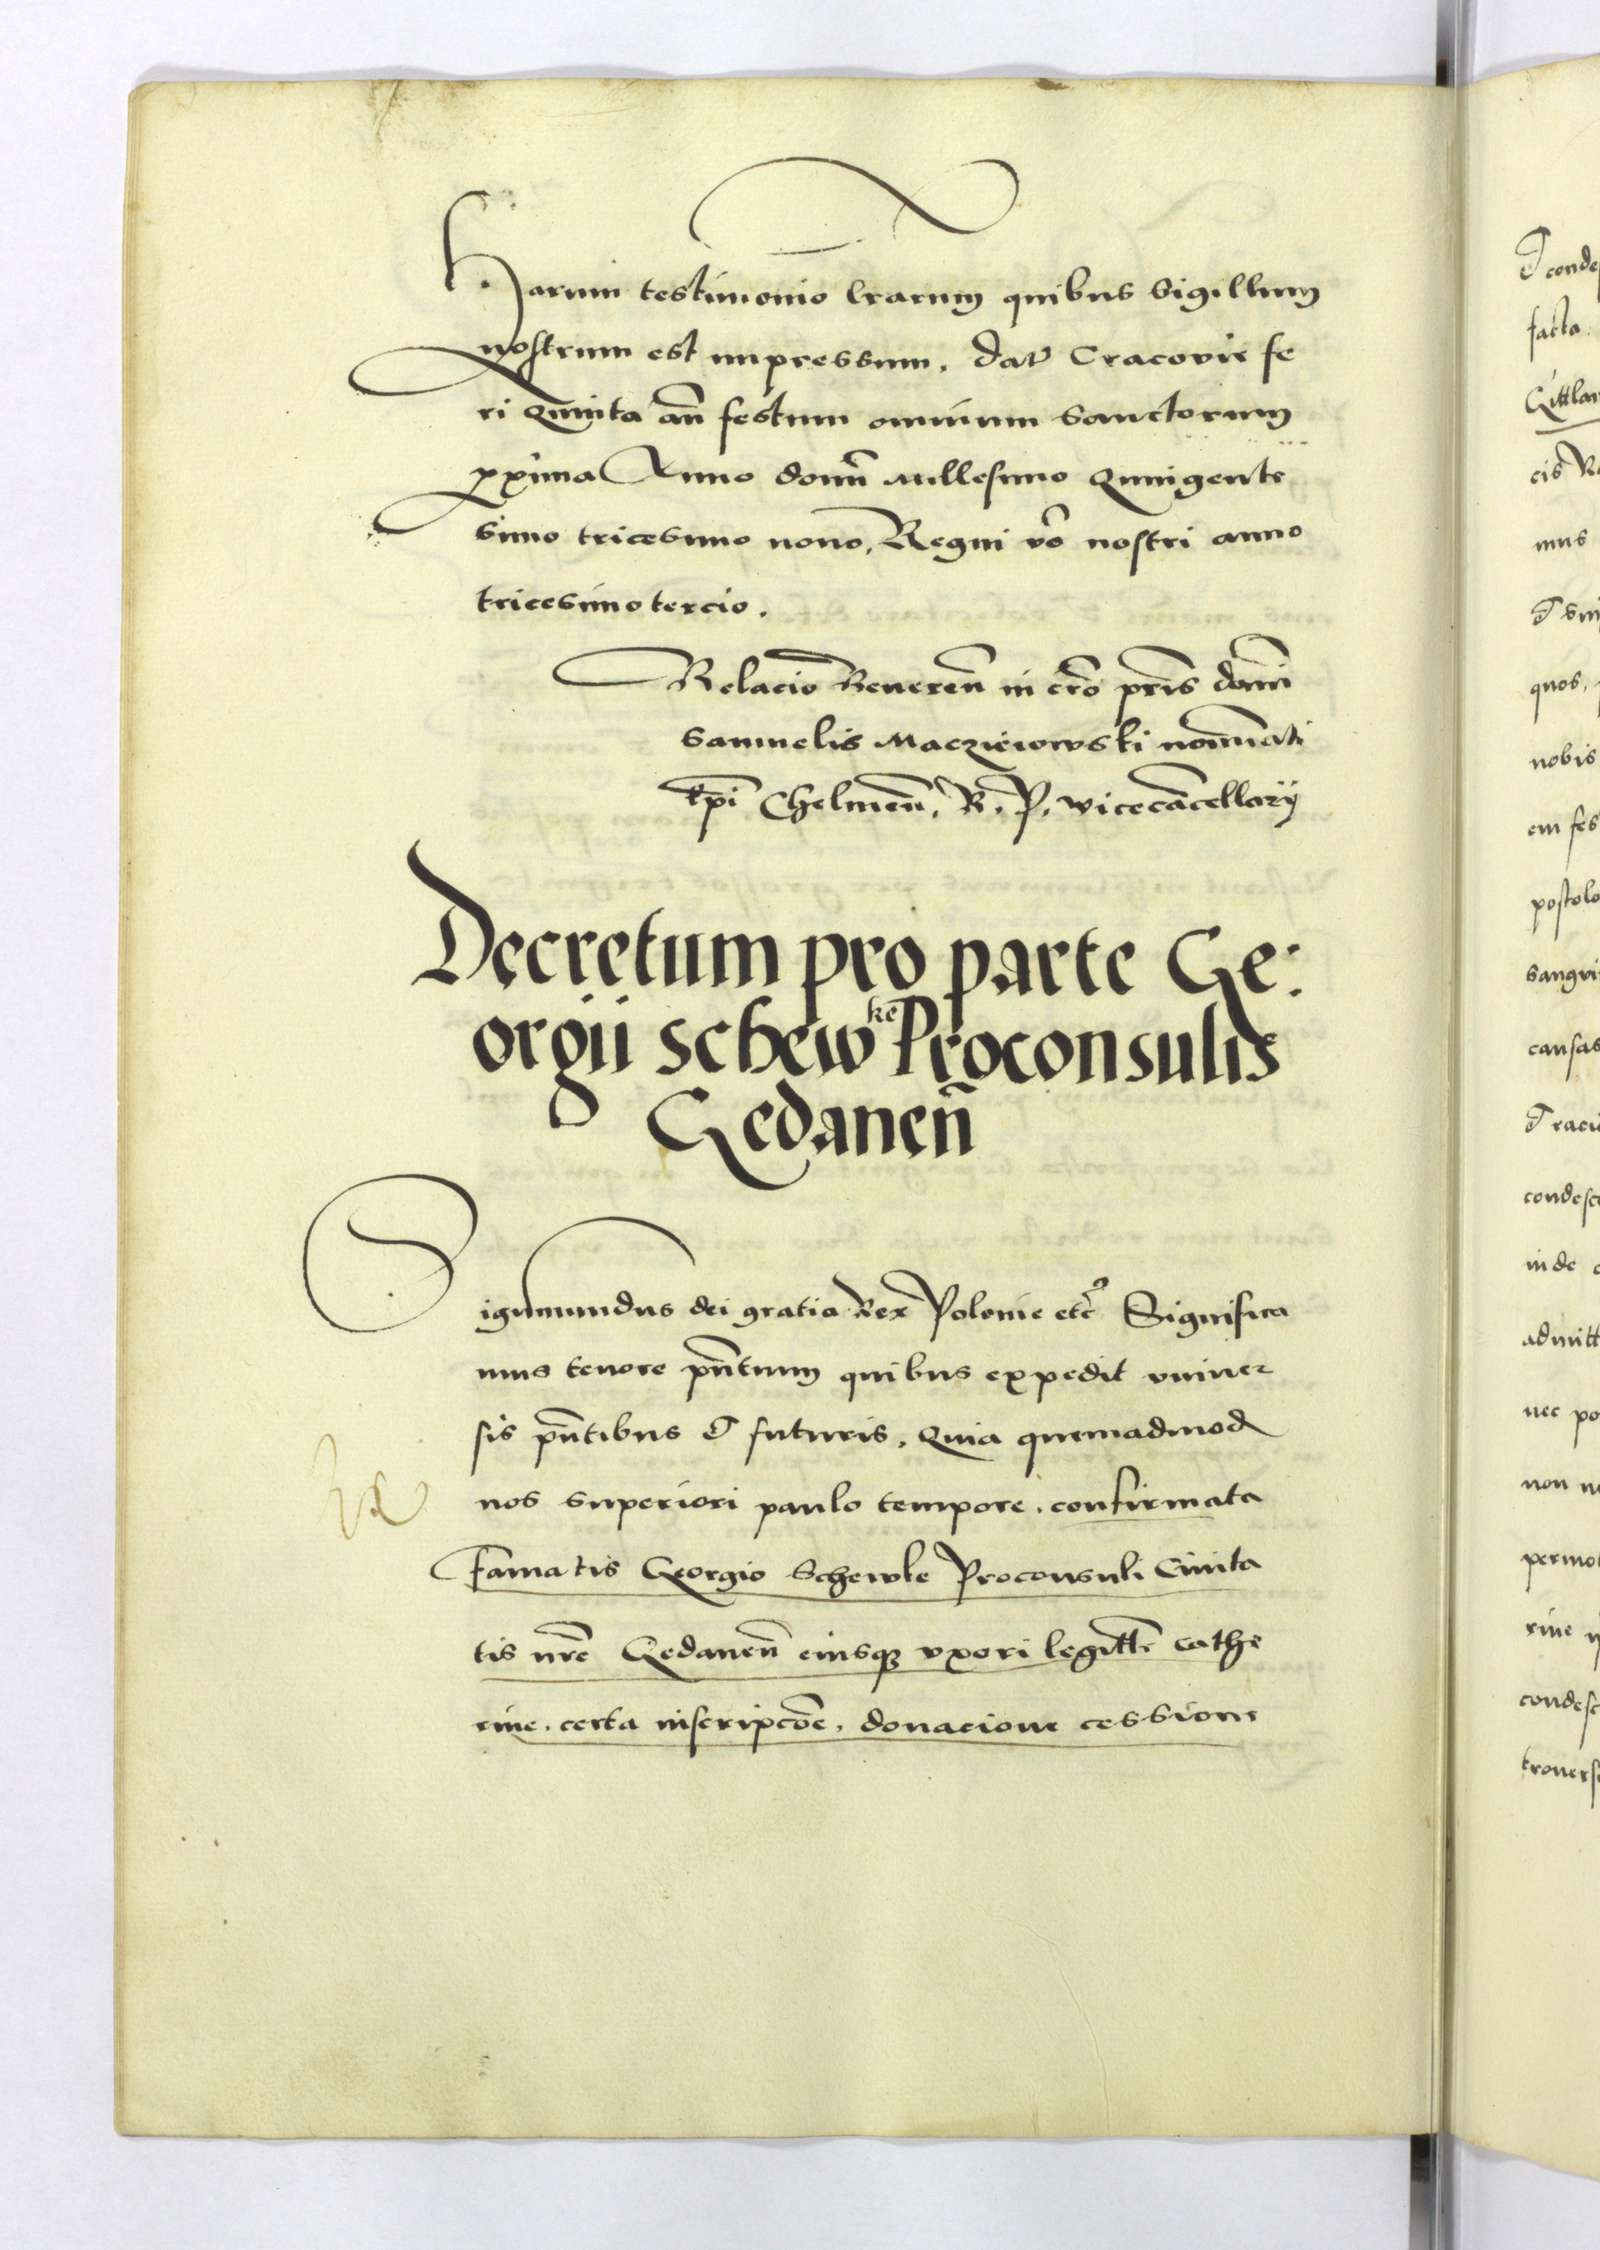 Harum testimonio lrarum quibus Sigillum
nostrum est impressum. Dat Cracovie fe
ri Quinta an festum omnium Sanctorum
pxima Anno domi Millesimo Quingente
simo tricesimo nono, Regni vo nostri anno
tricesimo tercio.
Relacio Reveren in cro pris domi
Samuelis Maczieiowski nominati
Epi Chelmen. R. P. vicecancellarij
Decretum pro parte Ge:
orgii schewke Proconsulis
Gedanen
Sigismundus dei gratia Rex Polonie etc Significa
mus tenore pntium quibus expedit univer
sis pntibus & futuris, Quia quemadmod
nos superiori paulo tempore, confirmata
Famatis Georgio Schewke Proconsuli Civita
tis nre Gedanen eiusque vxori legitte Cathe
rine, certa inscripcoe, donacione cessione
& conde
facta.
Gittlan
cis
mus
quos,
nobis
em fes
postolo
sangui
causas
condesc
inde
admitt
nec po
non
permot
rine
condesc
trovers